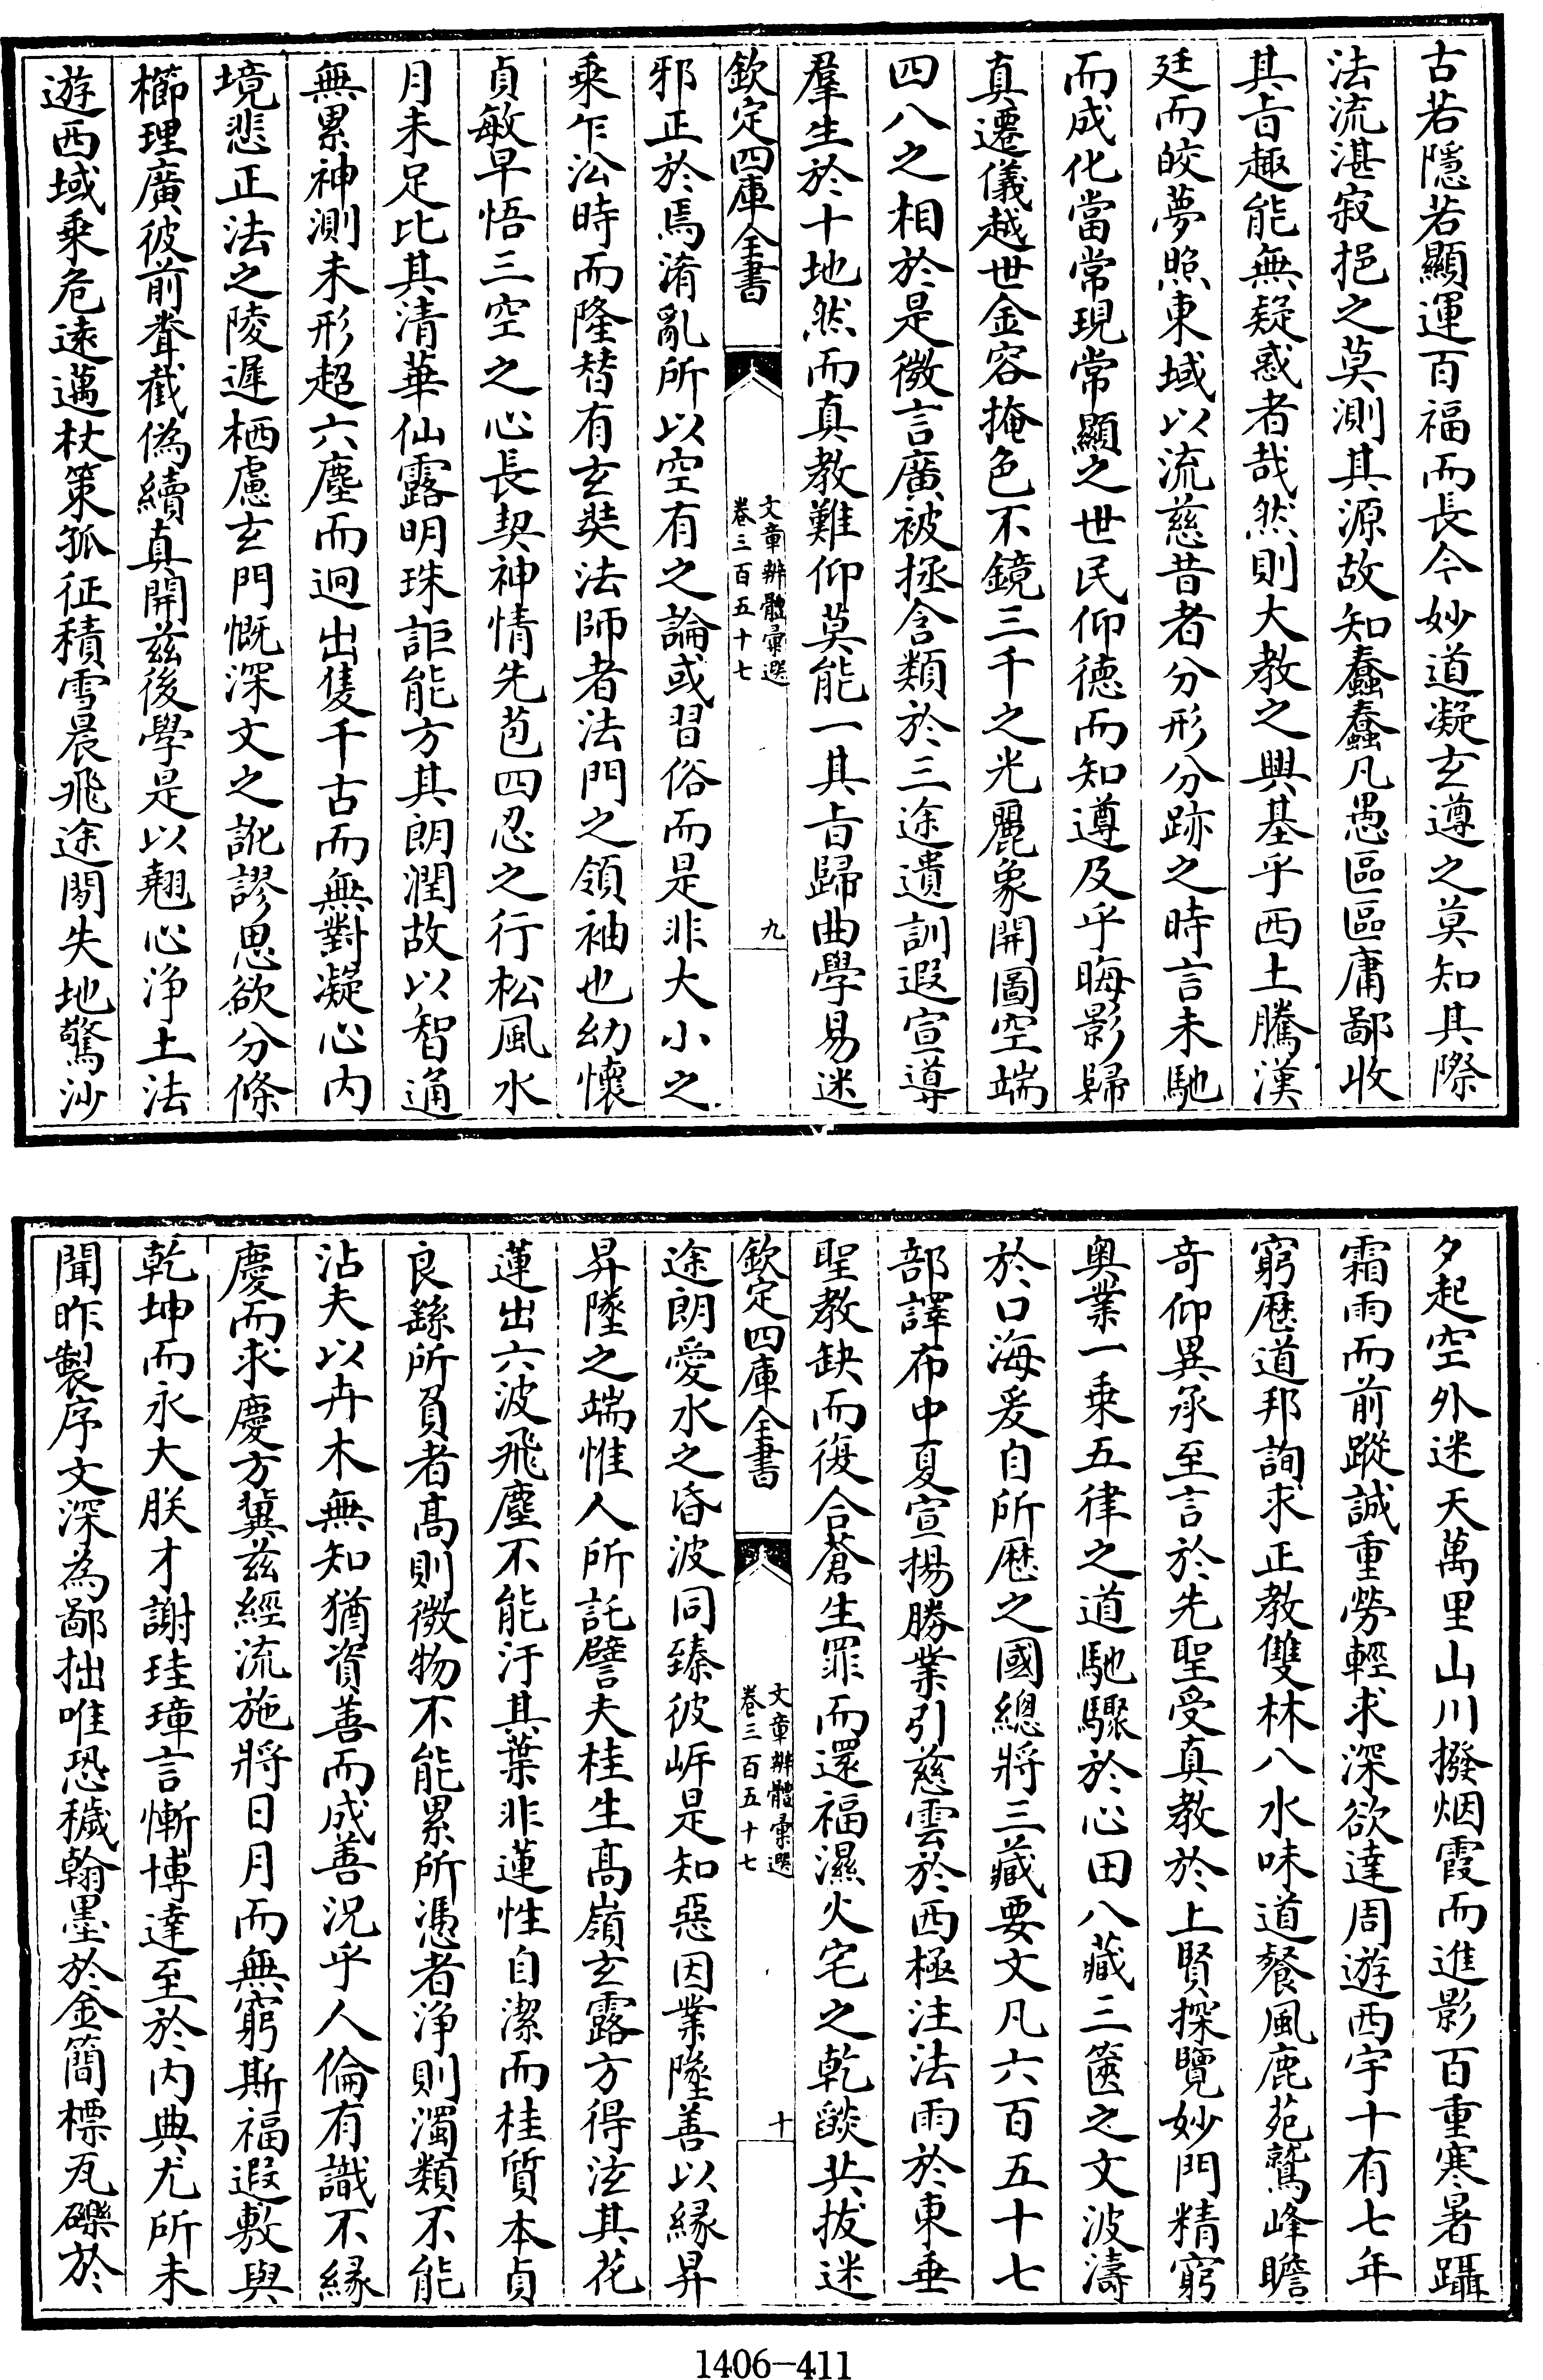 古若隱若顯運百福而長今妙道凝玄遵之莫知其際
法流湛寂挹之莫測其源故知蠢蠢凡愚區區庸鄙收
其旨趣能無疑惑者哉然則大教之興基乎西土騰漢
廷而皎夢照東域以流慈昔者分形分跡之時言未馳
而成化當常現常顯之世民仰德而知遵及乎晦影歸
真遷儀越世金容掩色不鏡三千之光麗象開圖空端
四八之相於是微言廣被拯含類於三途遺訓遐宣導
羣生於十地然而真教難仰莫能一其旨歸曲學易迷
欽定四庫全書
文章辨體彙選
卷三百五十七
九
邪正於焉淆亂所以空有之論或習俗而是非大小之
乘乍㳂時而隆替有玄奘法師者法門之領袖也幼懷
貞敏早悟三空之心長契神情先苞四忍之行松風水
月未足比其清華仙露明珠詎能方其朗潤故以智通
無累神測未形超六塵而迥出隻千古而無對凝心內
境悲正法之陵遲栖慮玄門慨深文之訛謬思欲分條
櫛理廣彼前聋截偽續真開茲後學是以翹心淨土法
遊西域乘危遠邁杖策孤征積雪晨飛途閒失地驚沙
夕起空外迷天萬里山川撥烟霞而進影百重寒暑躡
霜雨而前蹤誠重勞輕求深欲達周遊西宇十有七年
窮歷道邦詢求正教雙林八水味道餐風鹿苑鷲峰瞻
奇仰異承至言於先聖受真教於上賢探覽妙門精窮
奥業一乘五律之道馳驟於心田八藏三篋之文波濤
於口海爰自所歷之國總將三藏要文凡六百五十七
部譯布中夏宣揚勝業引慈雲於西極注法雨於東垂
聖教缺而復合蒼生罪而還福濕火宅之乾燄共拔迷
欽定四庫全書
文章辨體彙選
卷三百五十七
十
途朗愛水之昏波同臻彼岍是知惡因業墜善以緣昇
昇墜之端惟人所託譬夫桂生高嶺玄露方得泫其花
蓮出六波飛塵不能汙其葉非蓮性自潔而桂質本貞
良繇所負者高則微物不能累所憑者淨則濁類不能
沾夫以卉木無知猶資善而成善況乎人倫有識不緣
慶而求慶方冀茲經流施將日月而無窮斯福遐敷與
乾坤而永大朕才謝珪璋言慚博達至於内典尤所未
聞昨製序文深為鄙拙唯恐穢翰墨於金簡標瓦礫於
1406-411